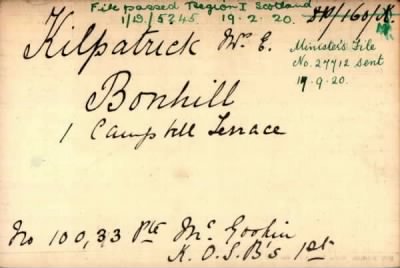 File passed Region I Scotland
1/D/5745. 19.2.20. SP/160/K
Kilpatrick Mrs E.
Minister's File
No. 27712 sent
17.9.20.
Bonhill
1 Campbell Terrace
No 100,33 Pte Mc Gookin
K.O.S.B's 1st